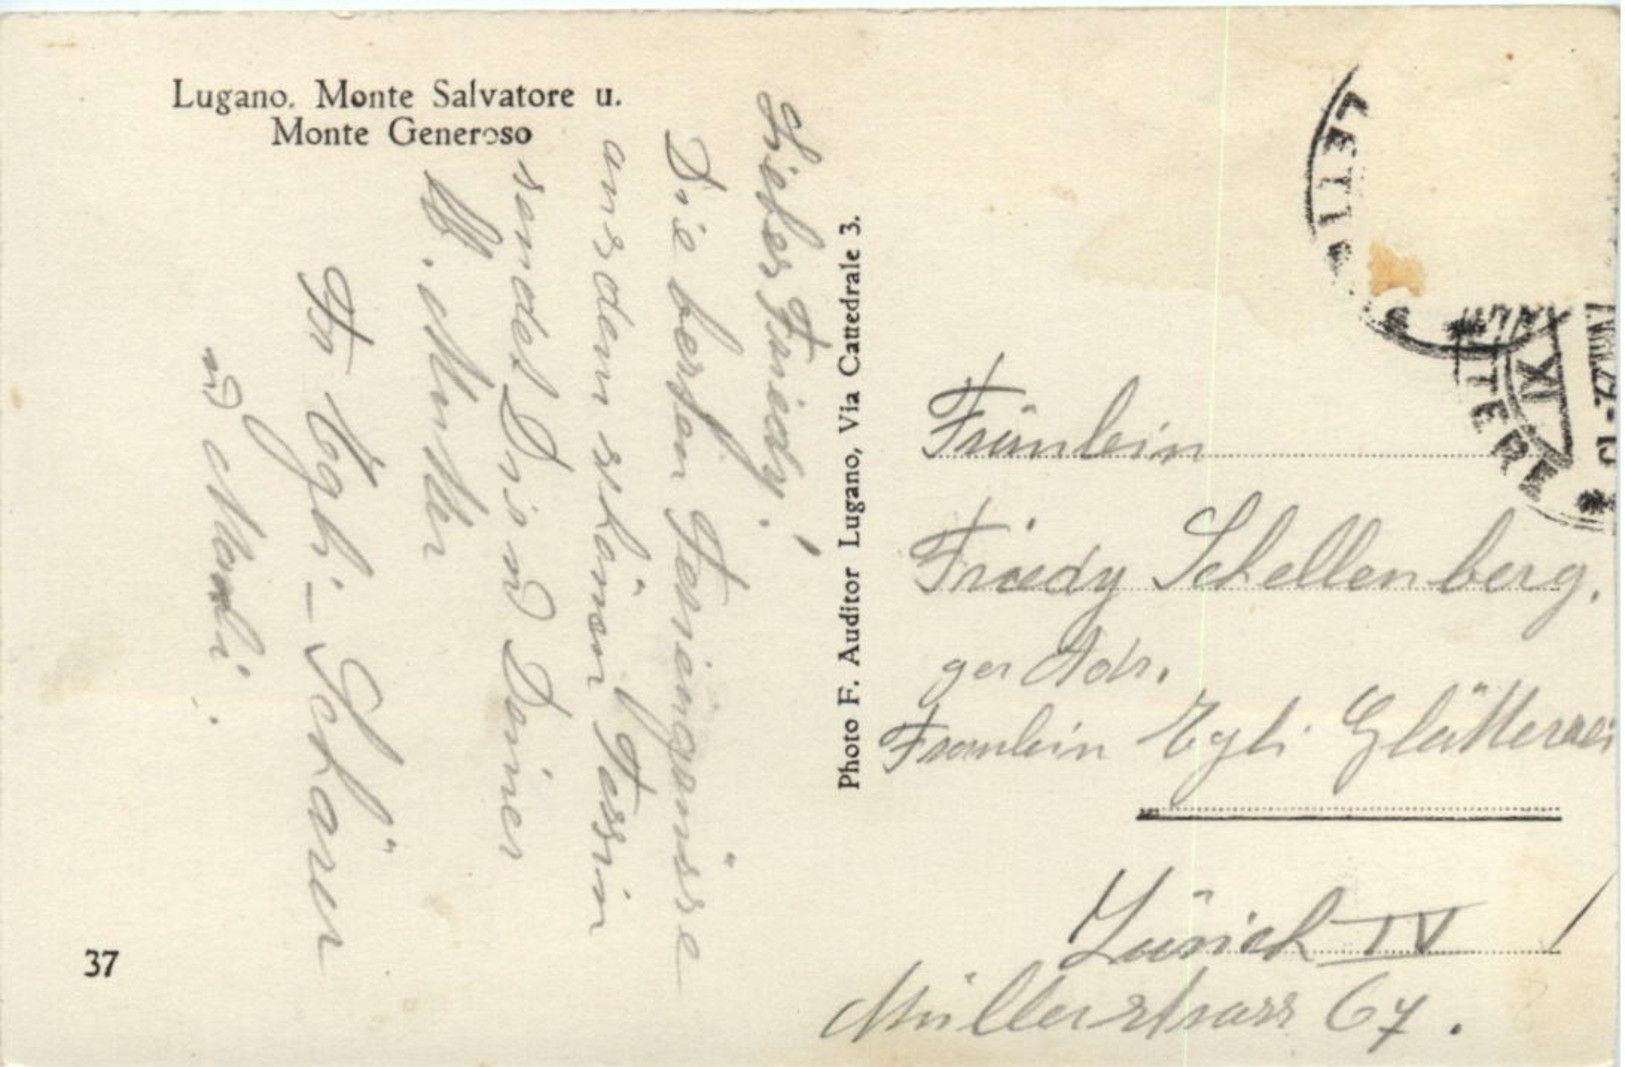 Lugano. Monte Salvatore u.
Monte Generoso
Lieber Friedy!
Die besten Feriengrüsse
aus dem schönen Tessin
sendet Dir Deiner
Mutter
Egli-Schär
Photo F. Auditor Lugano, Via Cattedrale 3.
37
LETT
XI
Fräulein
Friedy Schellenberg,
Adr.
Fraulein Egli Glätterei
Zürich IV
Müllerstrass 67.